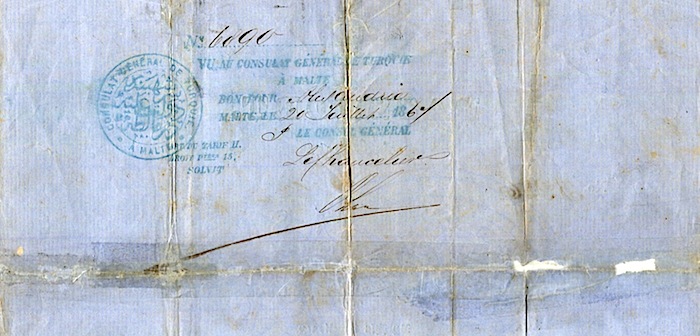 CONSULAT GÉNÉRAL DE TURQUIE
A MALTE
No. 6090
VU AU CONSULAT GÉNÉRAL DE TURQUIE
À MALTE
BON POUR
MALTE, LE 20 Juillet 186
LE CONSUL GÉNÉRAL
Le Chancelier
ART. DU TARIF II.
15,
SOLVIT